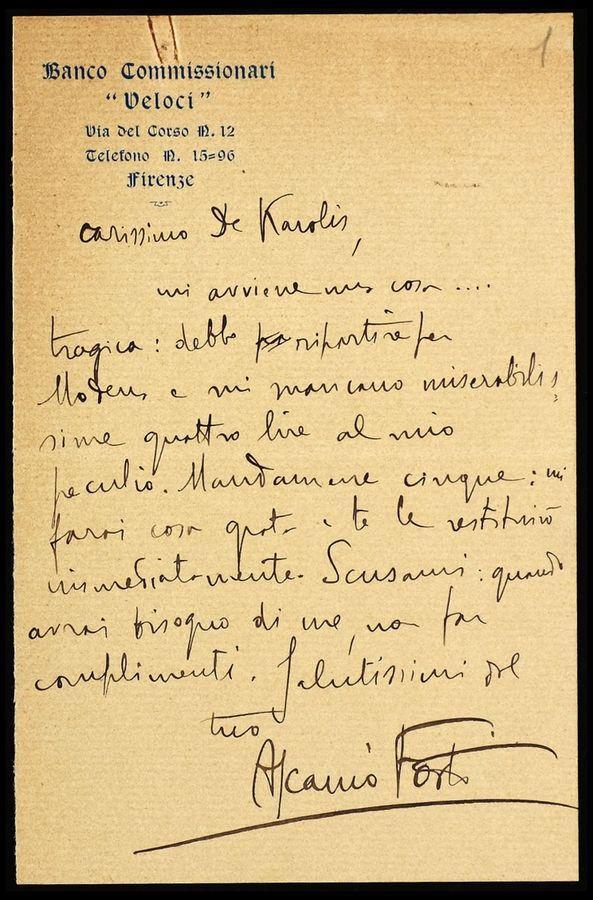 1
Banco Commissionari
"Veloci"
Via del Corso N. 12
Telefono N. 15=96
Firenze
carissimo De Karolis,
mi avviene una cosa ....
tragica: debbo ripartire per
Modena e mi mancano miserabilis=
sime quattro lire al mio
peculio. Mandamene cinque: mi
farai cosa grata e te le restituirò
immediatamente. Scusami: quando
avrai bisogno di me, non far
complimenti. Salutissimi dal
tuo
Ascanio Forti